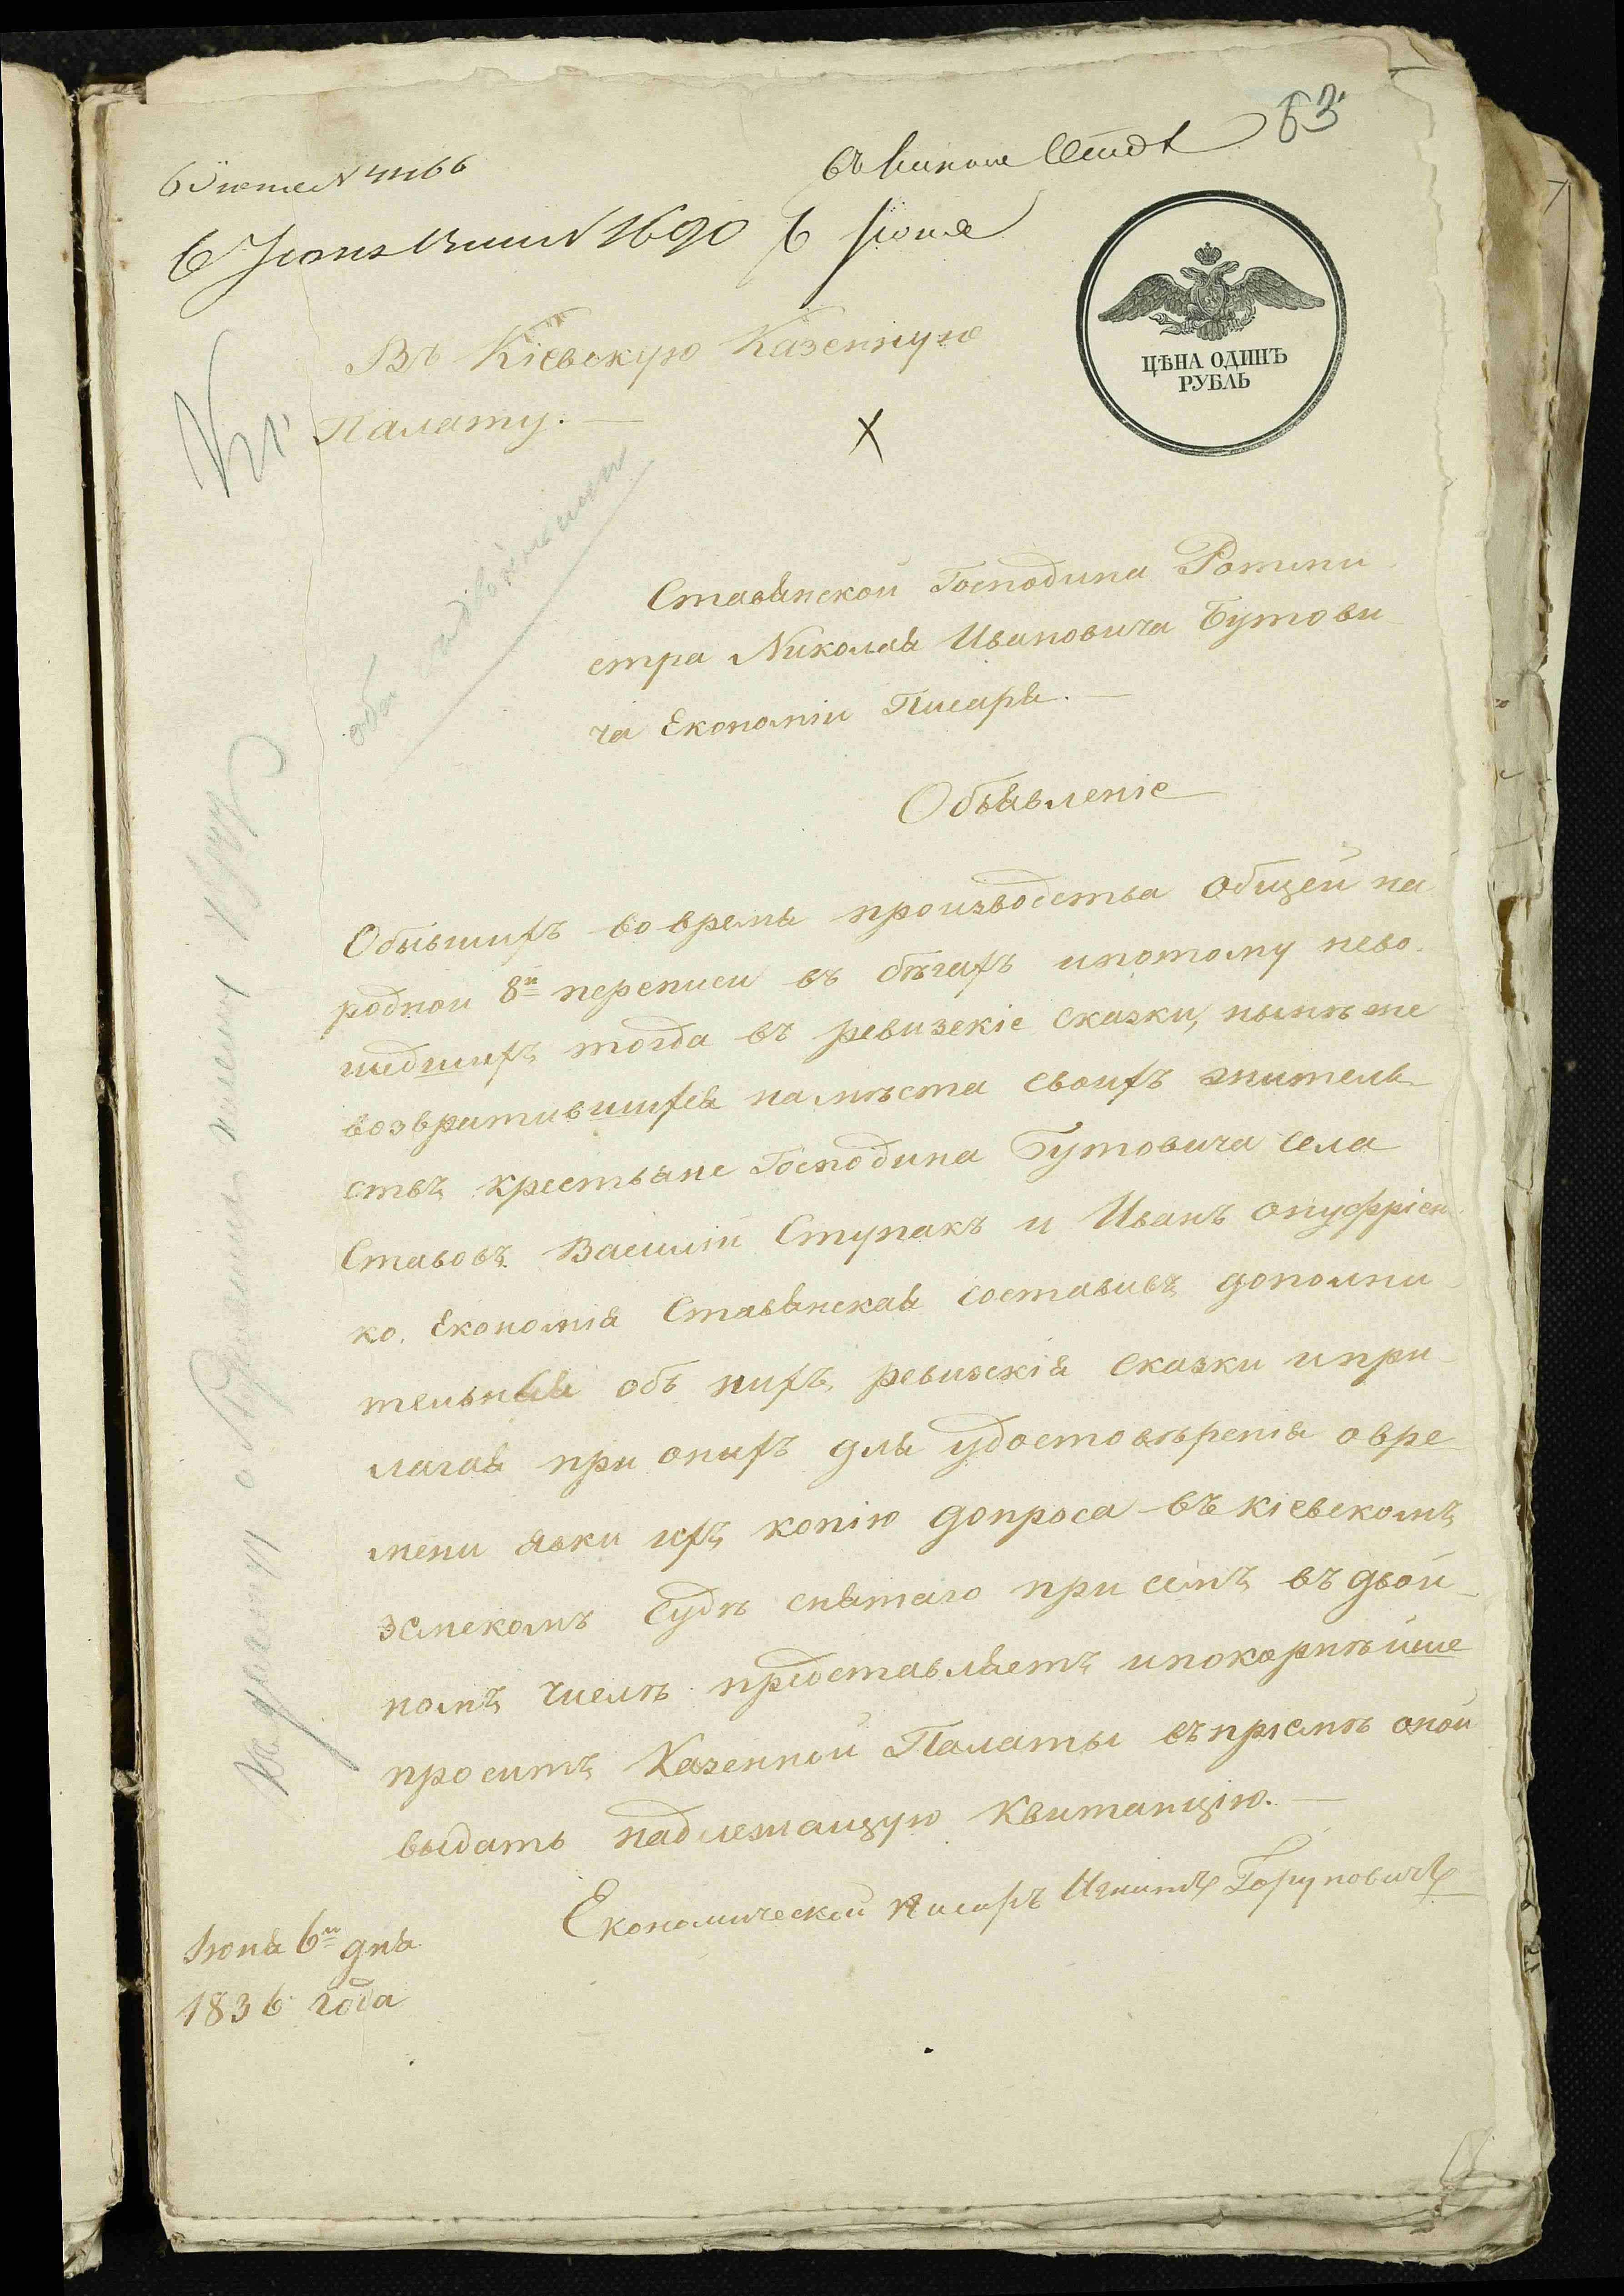 63
6 Іюня № 4466
6 Іюня № 1690 6 Іюня
ЦѢНА ОДИНЪ
РУБЛЬ
Въ Кіевскую Казенную
Палату. —
Ставянской Господина Ротми-
стра Николая Ивановича Бутови-
ча Економіи Писаря. —
Объявленіе
Обывшихъ вовремя производства общей на
родной 8й переписи въ бѣгахъ ипотому нево-
шедшихъ тогда въ ревизскіе сказки, нынѣ же
возвратившихся намѣста своихъ жительствъ
крестьяне Господина Бутовича села
Ставовъ Василій Ступакъ и Иванъ Онуфріен-
ко. Економія Ставянская составивъ дополни-
тельныя объ нихъ ревизскія сказки ипри-
лагая при онихъ для удостовѣренія овре-
мени явки ихъ копію допроса въ кіевскомъ
земскомъ Судѣ снятаго при семъ въ двой-
номъ числѣ представляетъ ипокорнѣйше
проситъ Казенной Палаты въ пріемѣ оной
выдать надлежащую Квитанцію. —
Економической писаръ Игнатъ Горуновичъ
Іюня 6го дня
1836 года